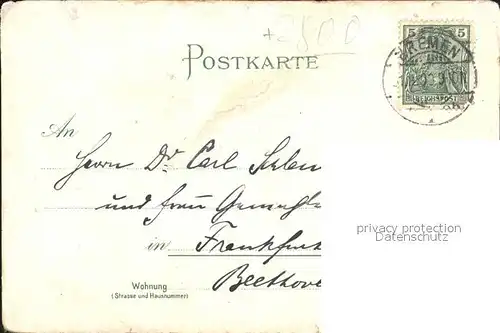 +3800
POSTKARTE
5 5
BREMEN
REICHSPOST
An
Herrn Dr. Carl
und Frau Gemahl
in Frankfurt
Beethove
Wohnung
(Strasse und Hausnummer)
privacy protection
Datenschutz